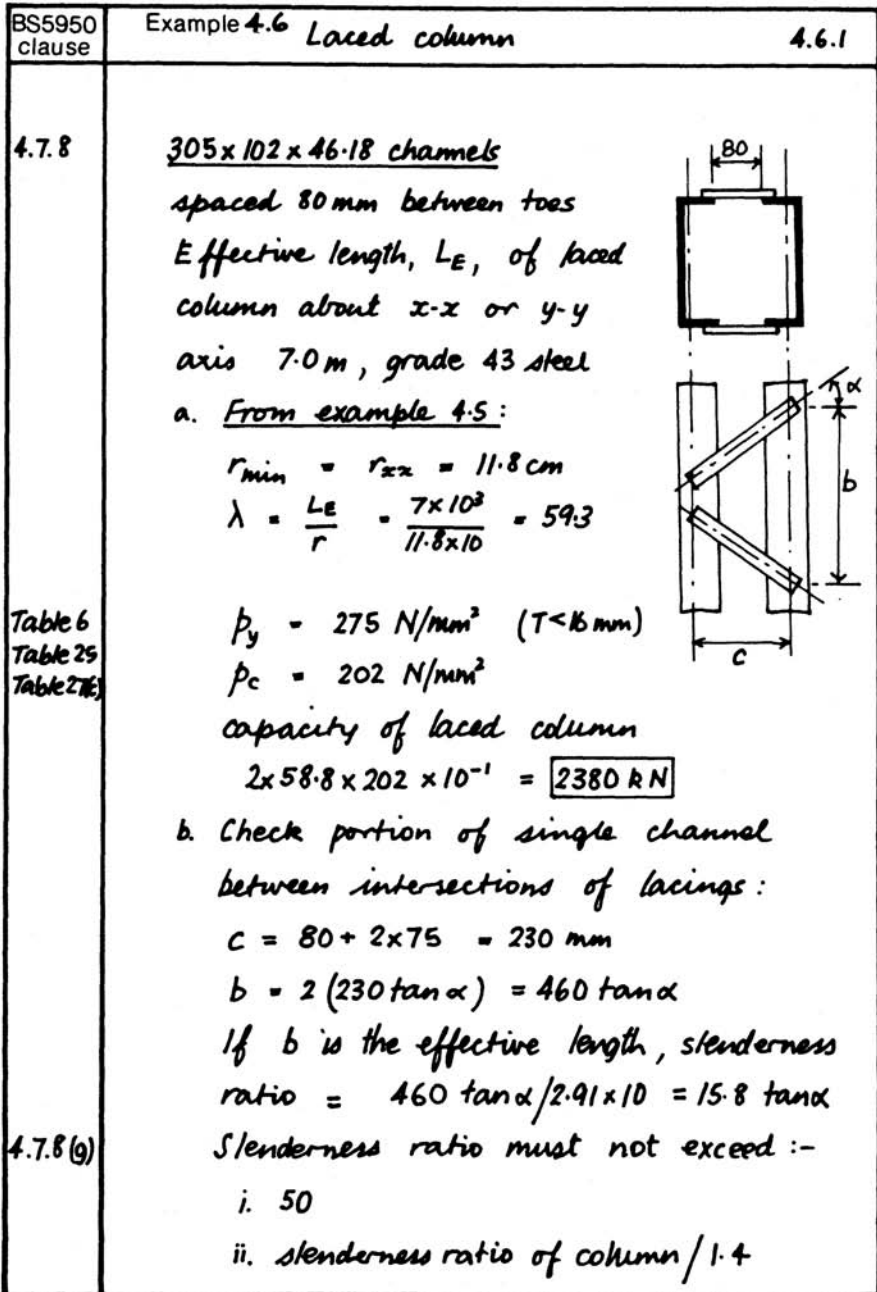 BS5950 clause
Example 4.6 Laced column 4.6.1
4.7.8
305 x 102 x 46.18 channels
80
spaced 80 mm between toes
Effective length, LE, of laced
column about x-x or y-y
axis 7.0 m, grade 43 steel
α
a. From example 4.5 :
rmin = rxx = 11.8 cm
b
λ = LE/r = 7×10³/11.8×10 = 59.3
Table 6 py = 275 N/mm² (T<16 mm)
Table 25
c
Table 27(c) pc = 202 N/mm²
capacity of laced column
2x 58.8 x 202 x 10⁻¹ = 2380 kN
b. Check portion of single channel
between intersections of lacings :
c = 80 + 2×75 = 230 mm
b = 2 (230 tan α) = 460 tan α
If b is the effective length, slenderness
ratio = 460 tan α/2.91×10 = 15.8 tanα
4.7.8 (g) Slenderness ratio must not exceed :-
i. 50
ii. slenderness ratio of column / 1.4